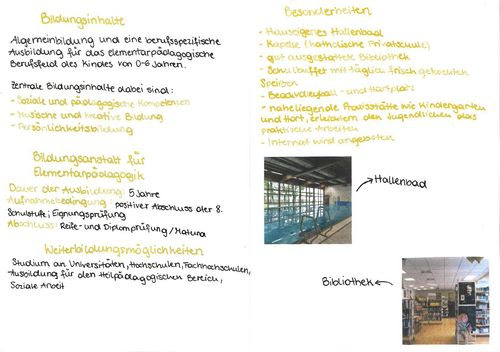 Bildungsinhalte
Allgemeinbildung und eine berufsspezifische
Ausbildung für das elementarpädagogische
Berufsfeld des Kindes von 0-6 Jahren.
Zentrale Bildungsinhalte dabei sind:
- Soziale und pädagogische Kompetenzen
- Musische und kreative Bildung
- Persönlichkeitsbildung
Bildungsanstalt für
Elementarpädagogik
Dauer der Ausbildung: 5 Jahre
Aufnahmebedingung: positiver Abschluss der 8.
Schulstufe; Eignungsprüfung
Abschluss: Reife- und Diplomprüfung / Matura
Weiterbildungsmöglichkeiten
Studium an Universitäten, Hochschulen, Fachhochschulen,
Ausbildung für den Heilpädagogischen Bereich,
Soziale Arbeit
Besonderheiten
- Hauseigenes Hallenbad
- Kapelle (katholische Privatschule)
- gut ausgestattete Bibliothek
- Schulbuffet mit täglich frisch gekochten
Speisen
- Beachvolleyball- und Hartplatz
- naheliegende Praxisstätte wie Kindergarten
und Hort, erleichtern den Jugendlichen das
praktische Arbeiten
- Internat wird angeboten
Hallenbad
Bibliothek